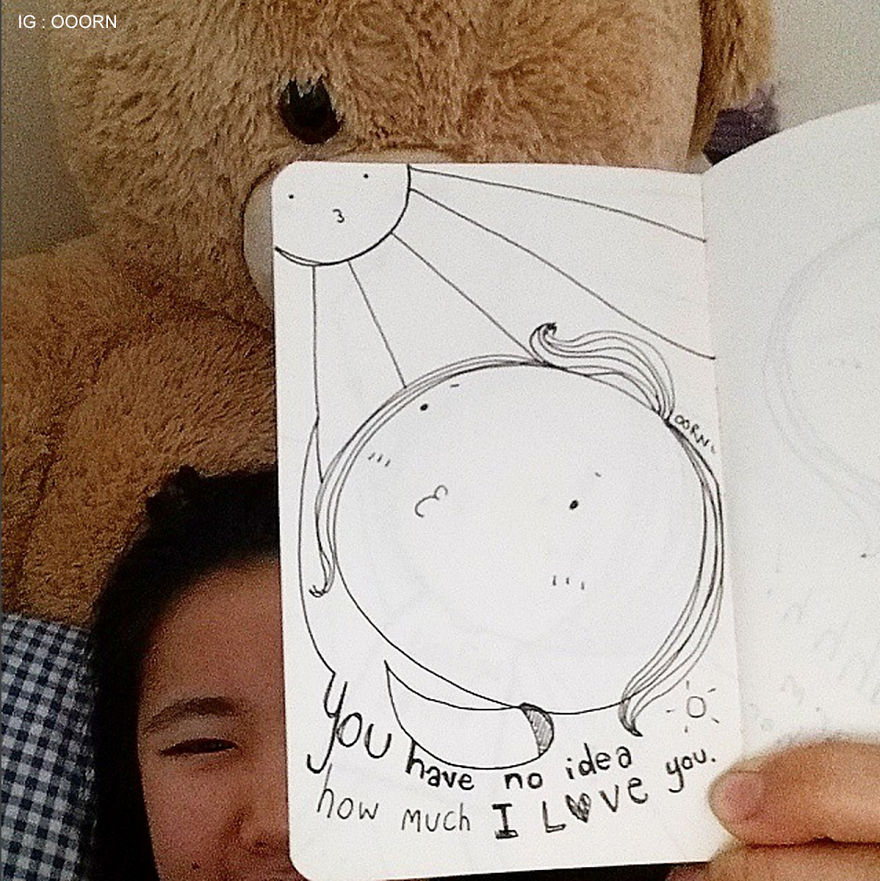 IG : OOORN
OORN
You have no idea
how much I LOVE you.